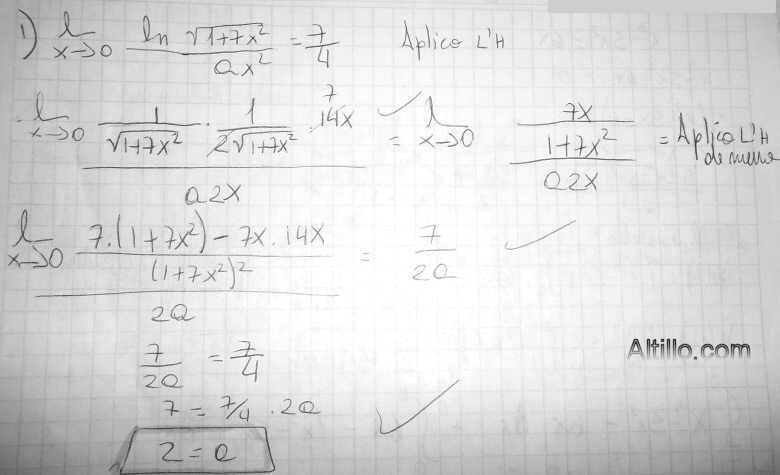 1) l x→0 ln √1+7x² / a x² = 7/4 Aplico L'H
l x→0 1/√1+7x² · 1/2√1+7x² · 14x 7 / a2x = l x→0 7x/1+7x² / a2x = Aplico L'H de nuevo
l x→0 7·(1+7x²) - 7x·14x / (1+7x²)² / 2a = 7/2a
7/2a = 7/4
7 = 7/4 · 2a
2 = a
Altillo.com